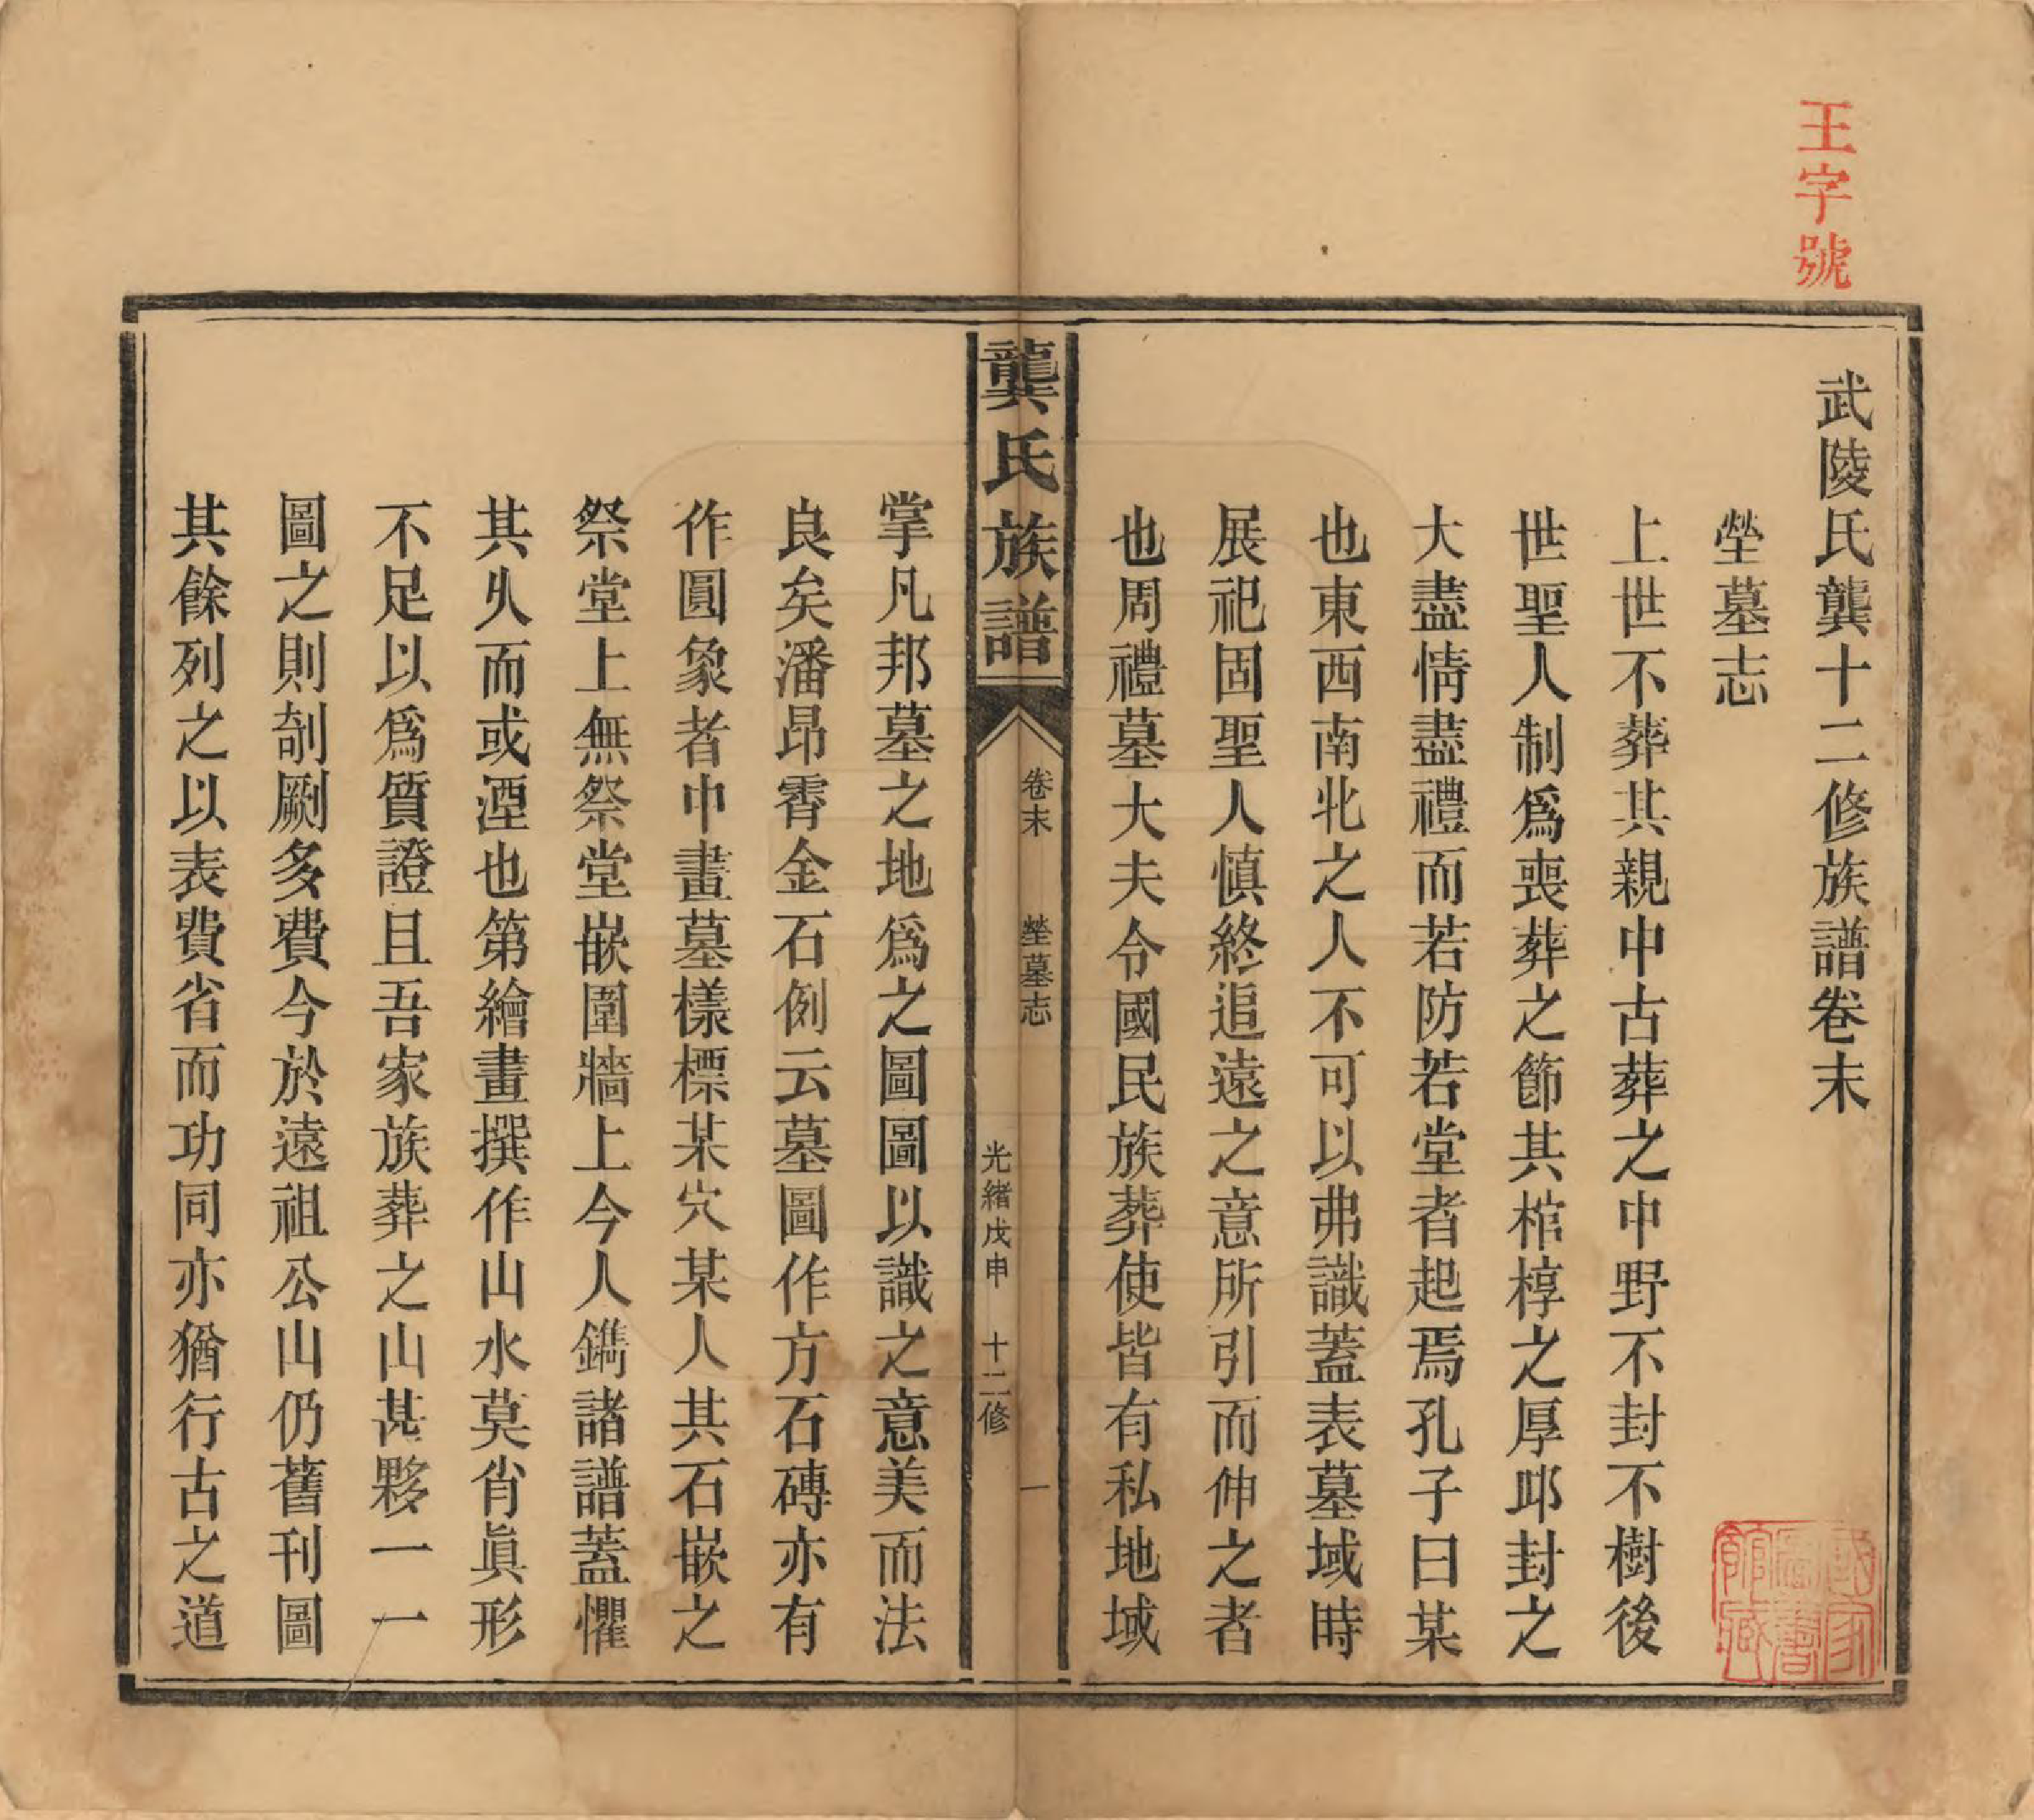 王字號
武陵氏龔十二修族譜卷末
塋墓志
上世不葬其親中古葬之中野不封不樹後
世聖人制爲喪葬之節其棺椁之厚邱封之
大盡情盡禮而若防若堂者起焉孔子曰某
也東西南北之人不可以弗識蓋表墓域時
展祀固聖人慎終追遠之意所引而伸之者
也周禮墓大夫令國民族葬使皆有私地域
龔氏族譜
卷末 塋墓志 一
光緒戊申 十二修
掌凡邦墓之地爲之圖圖以識之意美而法
良矣潘昂霄金石例云墓圖作方石磚亦有
作圓象者中畫墓樣標某穴某人其石嵌之
祭堂上無祭堂嵌圍牆上今人鐫諸譜蓋懼
其久而或湮也第繪畫撰作山水莫肖眞形
不足以爲質證且吾家族葬之山甚夥一一
圖之則剞劂多費今於遠祖公山仍舊刊圖
其餘列之以表費省而功同亦猶行古之道
國家圖書館藏